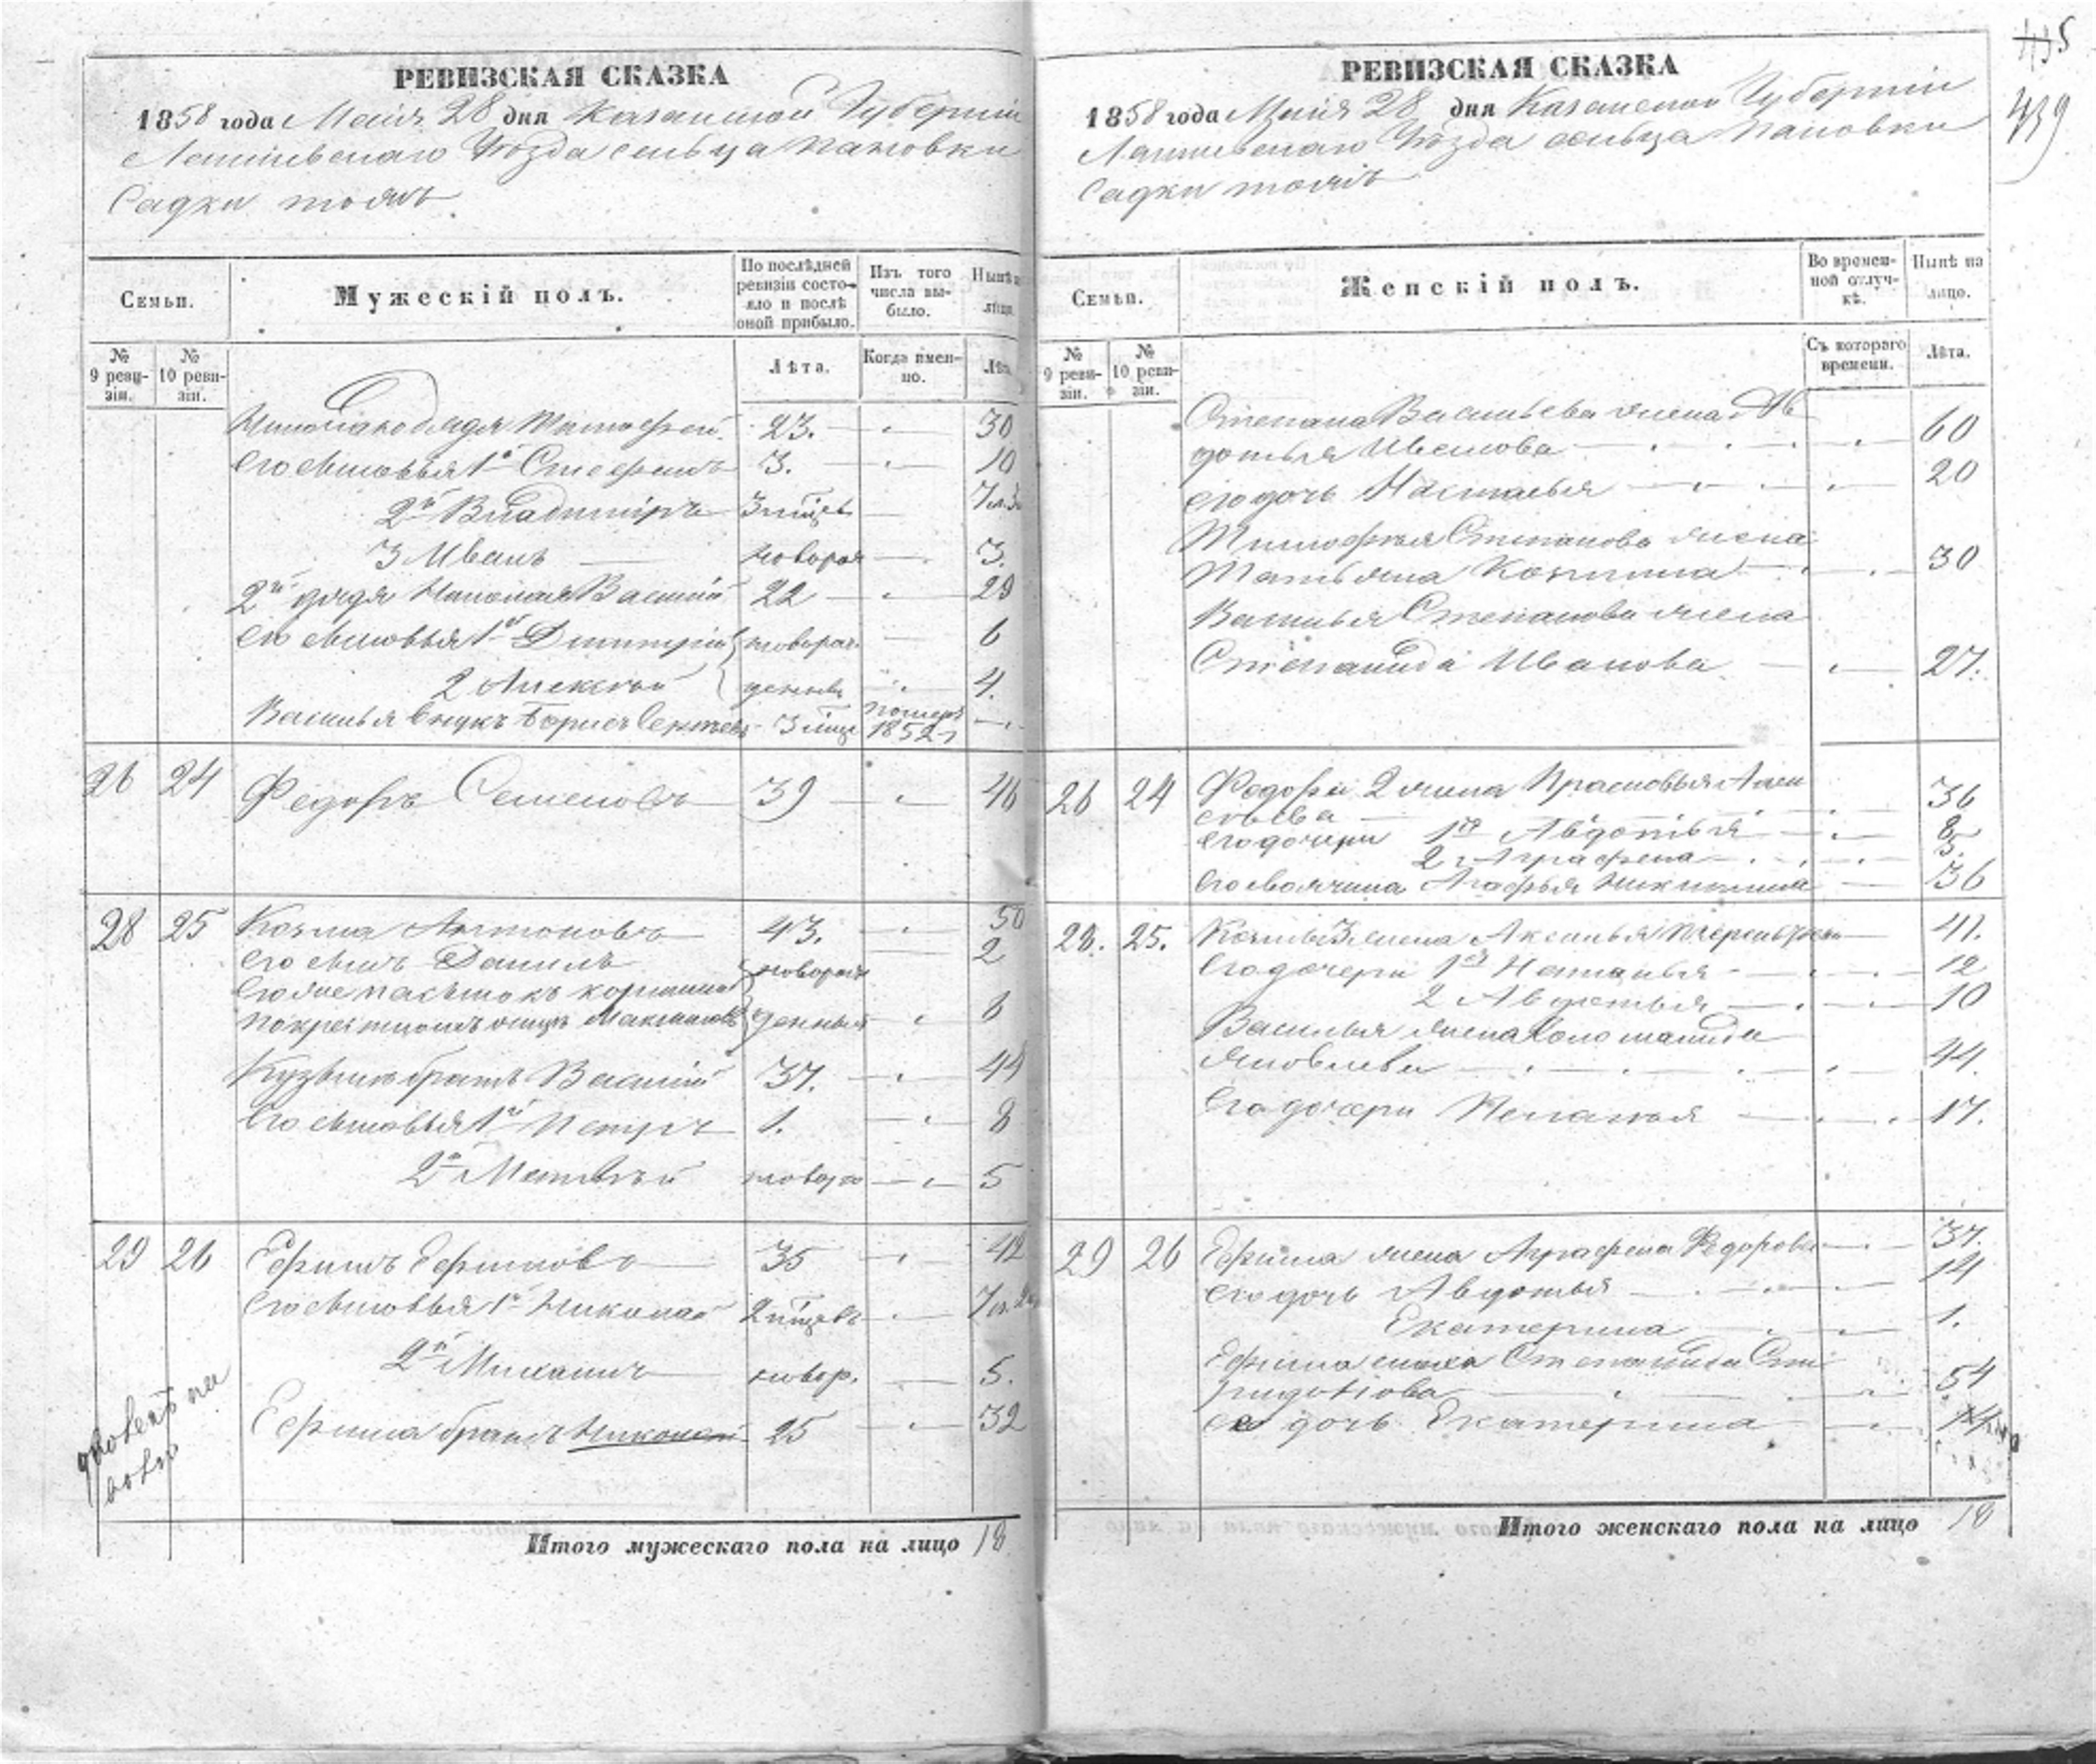 РЕВИЗСКАЯ СКАЗКА
1858 года Маія 28 дня Казанской Губерніи
Лаишевскаго Уѣзда сельца Пановки
Садки тожъ
Семьи.
Мужескій полъ.
По послѣдней ревизіи состояло и послѣ оной прибыло.
Изъ того числа выбыло.
Нынѣ на лицо.
№ 9 ревизіи.
№ 10 ревизіи.
Лѣта.
Когда именно.
Лѣта
дядя Тимофей 23. 30
Его сыновья 1й Стефанъ 3. 10
2й Владиміръ 3 мѣсев 7
3 Иванъ новорож 3.
2й дядя Николая Василій 22 29
Его сыновья 1й Димитрій новорож 6
2 Алексѣй денные 4.
Василья внукъ Борисъ Сергѣевъ 3 мѣсе помер 1852 г
26 24 Федоръ Семеновъ 39 46
28 25 Козма Антоновъ 43. 50
Его сынъ Данилъ новорож 2
Его же пасынокъ
по крестному отцу Максимовъ денный 6
Кузьмы братъ Василій 37. 44
Его сыновья 1й Петръ 1. 8
2й Матвѣй новоро 5
29 26 Ефимъ Ефимовъ 35 42
Его сыновья 1й Николай 2 мѣсев 7
2й Михаилъ новор. 5.
Ефима братъ Николай 25 32
Итого мужескаго пола на лицо 18
435
439
РЕВИЗСКАЯ СКАЗКА
1858 года Маія 28 дня Казанской Губерніи
Лаишевскаго Уѣзда сельца Пановки
Садки тожъ
Семьи.
Женскій полъ.
Во временной отлучкѣ.
Нынѣ на лицо.
№ 9 ревизіи.
№ 10 ревизіи.
Съ котораго времени.
Лѣта.
Степана Васильева жена Ав
дотья Иванова 60
его дочь Наталья 20
Тимофея Степанова жена
Татьяна Козмина 30
Василья Степанова жена
Степанида Иванова 27.
26 24 Федора 2 жена Прасковья Алек
сѣева 36
его дочери 1я Авдотья 8
2я Аграфена 5.
его своячина Агафья 36
28. 25. Козмы 3 жена Аксинья 41.
его дочери 1я Наталья 12
2 Авдотья 10
Василья жена Соломанида
Яковлева 44.
Его дочери Пелагея 17.
29 26 Ефима жена Аграфена Федорова 37.
его дочь Авдотья 14
Екатерина 1.
Ефима мачиха Степанида Спи
ридонова 54
ее дочь Екатерина 14
Итого женскаго пола на лицо 18